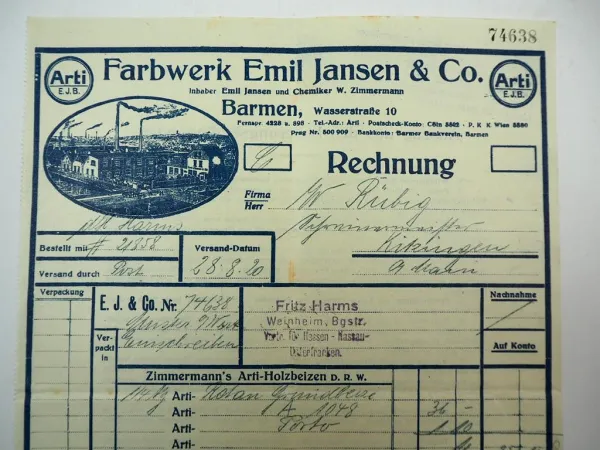 74638
Arti
E.J.B.
Farbwerk Emil Jansen & Co.
Arti
E.J.B.
Inhaber Emil Jansen und Chemiker W. Zimmermann
Barmen, Wasserstraße 10
Fernspr. 4228 u. 898 · Tel.-Adr.: Arti · Postscheck-Konto: Cöln 5502 · P. K. K Wien 5580
Prag Nr. 500 909 · Bankkonto: Barmer Bankverein, Barmen
Rechnung
Firma
Herr
W Rübig
Schreinermeister
Kitzingen
a Main
Harms
Bestellt mit # 21858
Versand durch Post
Versand-Datum
28.8.20
Verpackung
E. J. & Co. Nr. 74638
Muster
Ver-
packt
in
Einschreiben
Fritz Harms
Weinheim, Bgstr.
Vertr. für Hessen-Nassau-
Unterfranken.
Nachnahme
Auf Konto
Zimmermann's Arti-Holzbeizen D. R. W.
Arti-
Arti- A 1048 36 -
Arti- Porto
Arti-